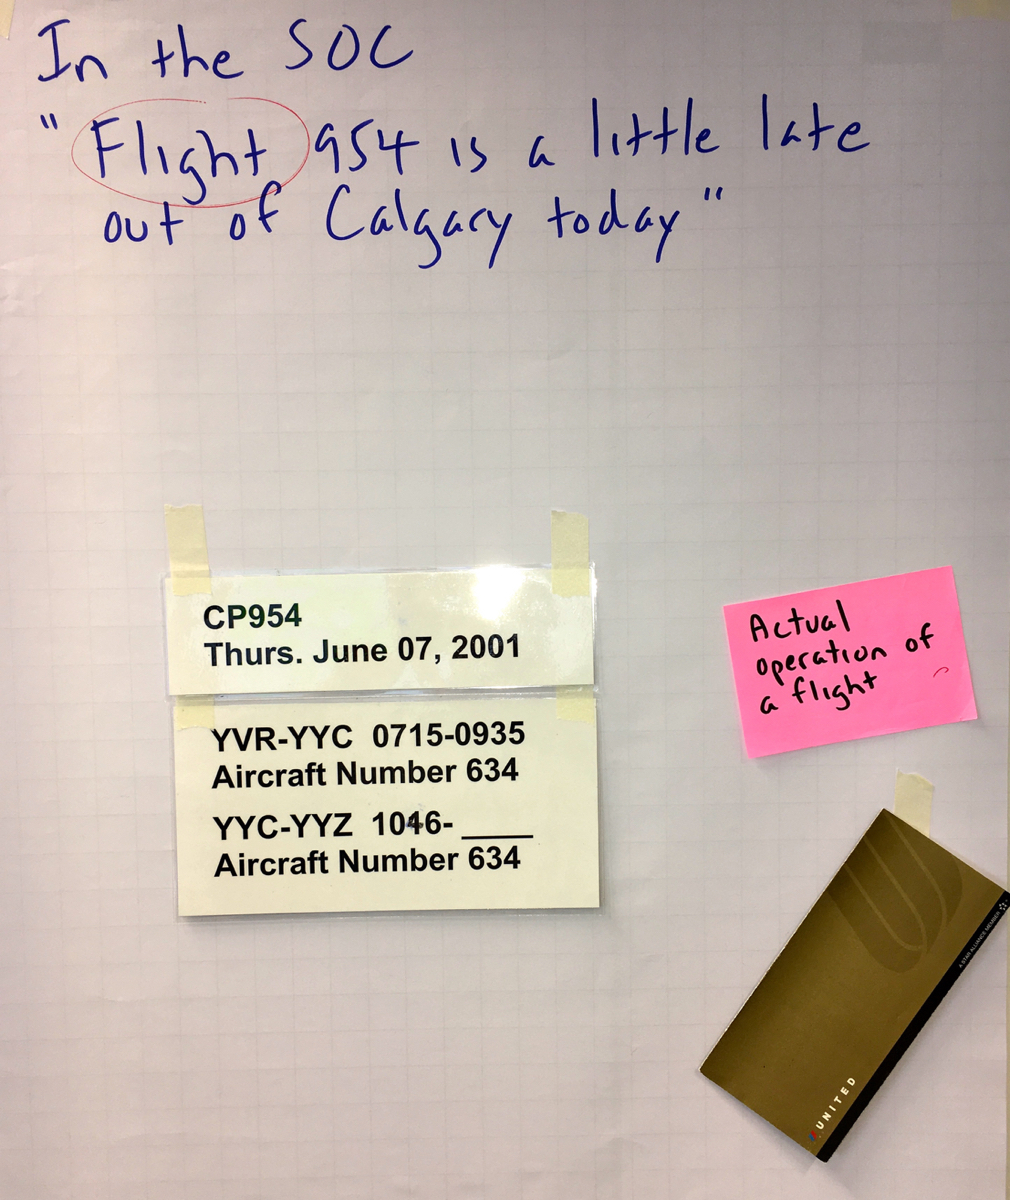 In the SOC
"Flight 954 is a little late
out of Calgary today"
CP954
Thurs. June 07, 2001
YVR-YYC 0715-0935
Aircraft Number 634
YYC-YYZ 1046-____
Aircraft Number 634
Actual
operation of
a flight
A STAR ALLIANCE MEMBER
UNITED